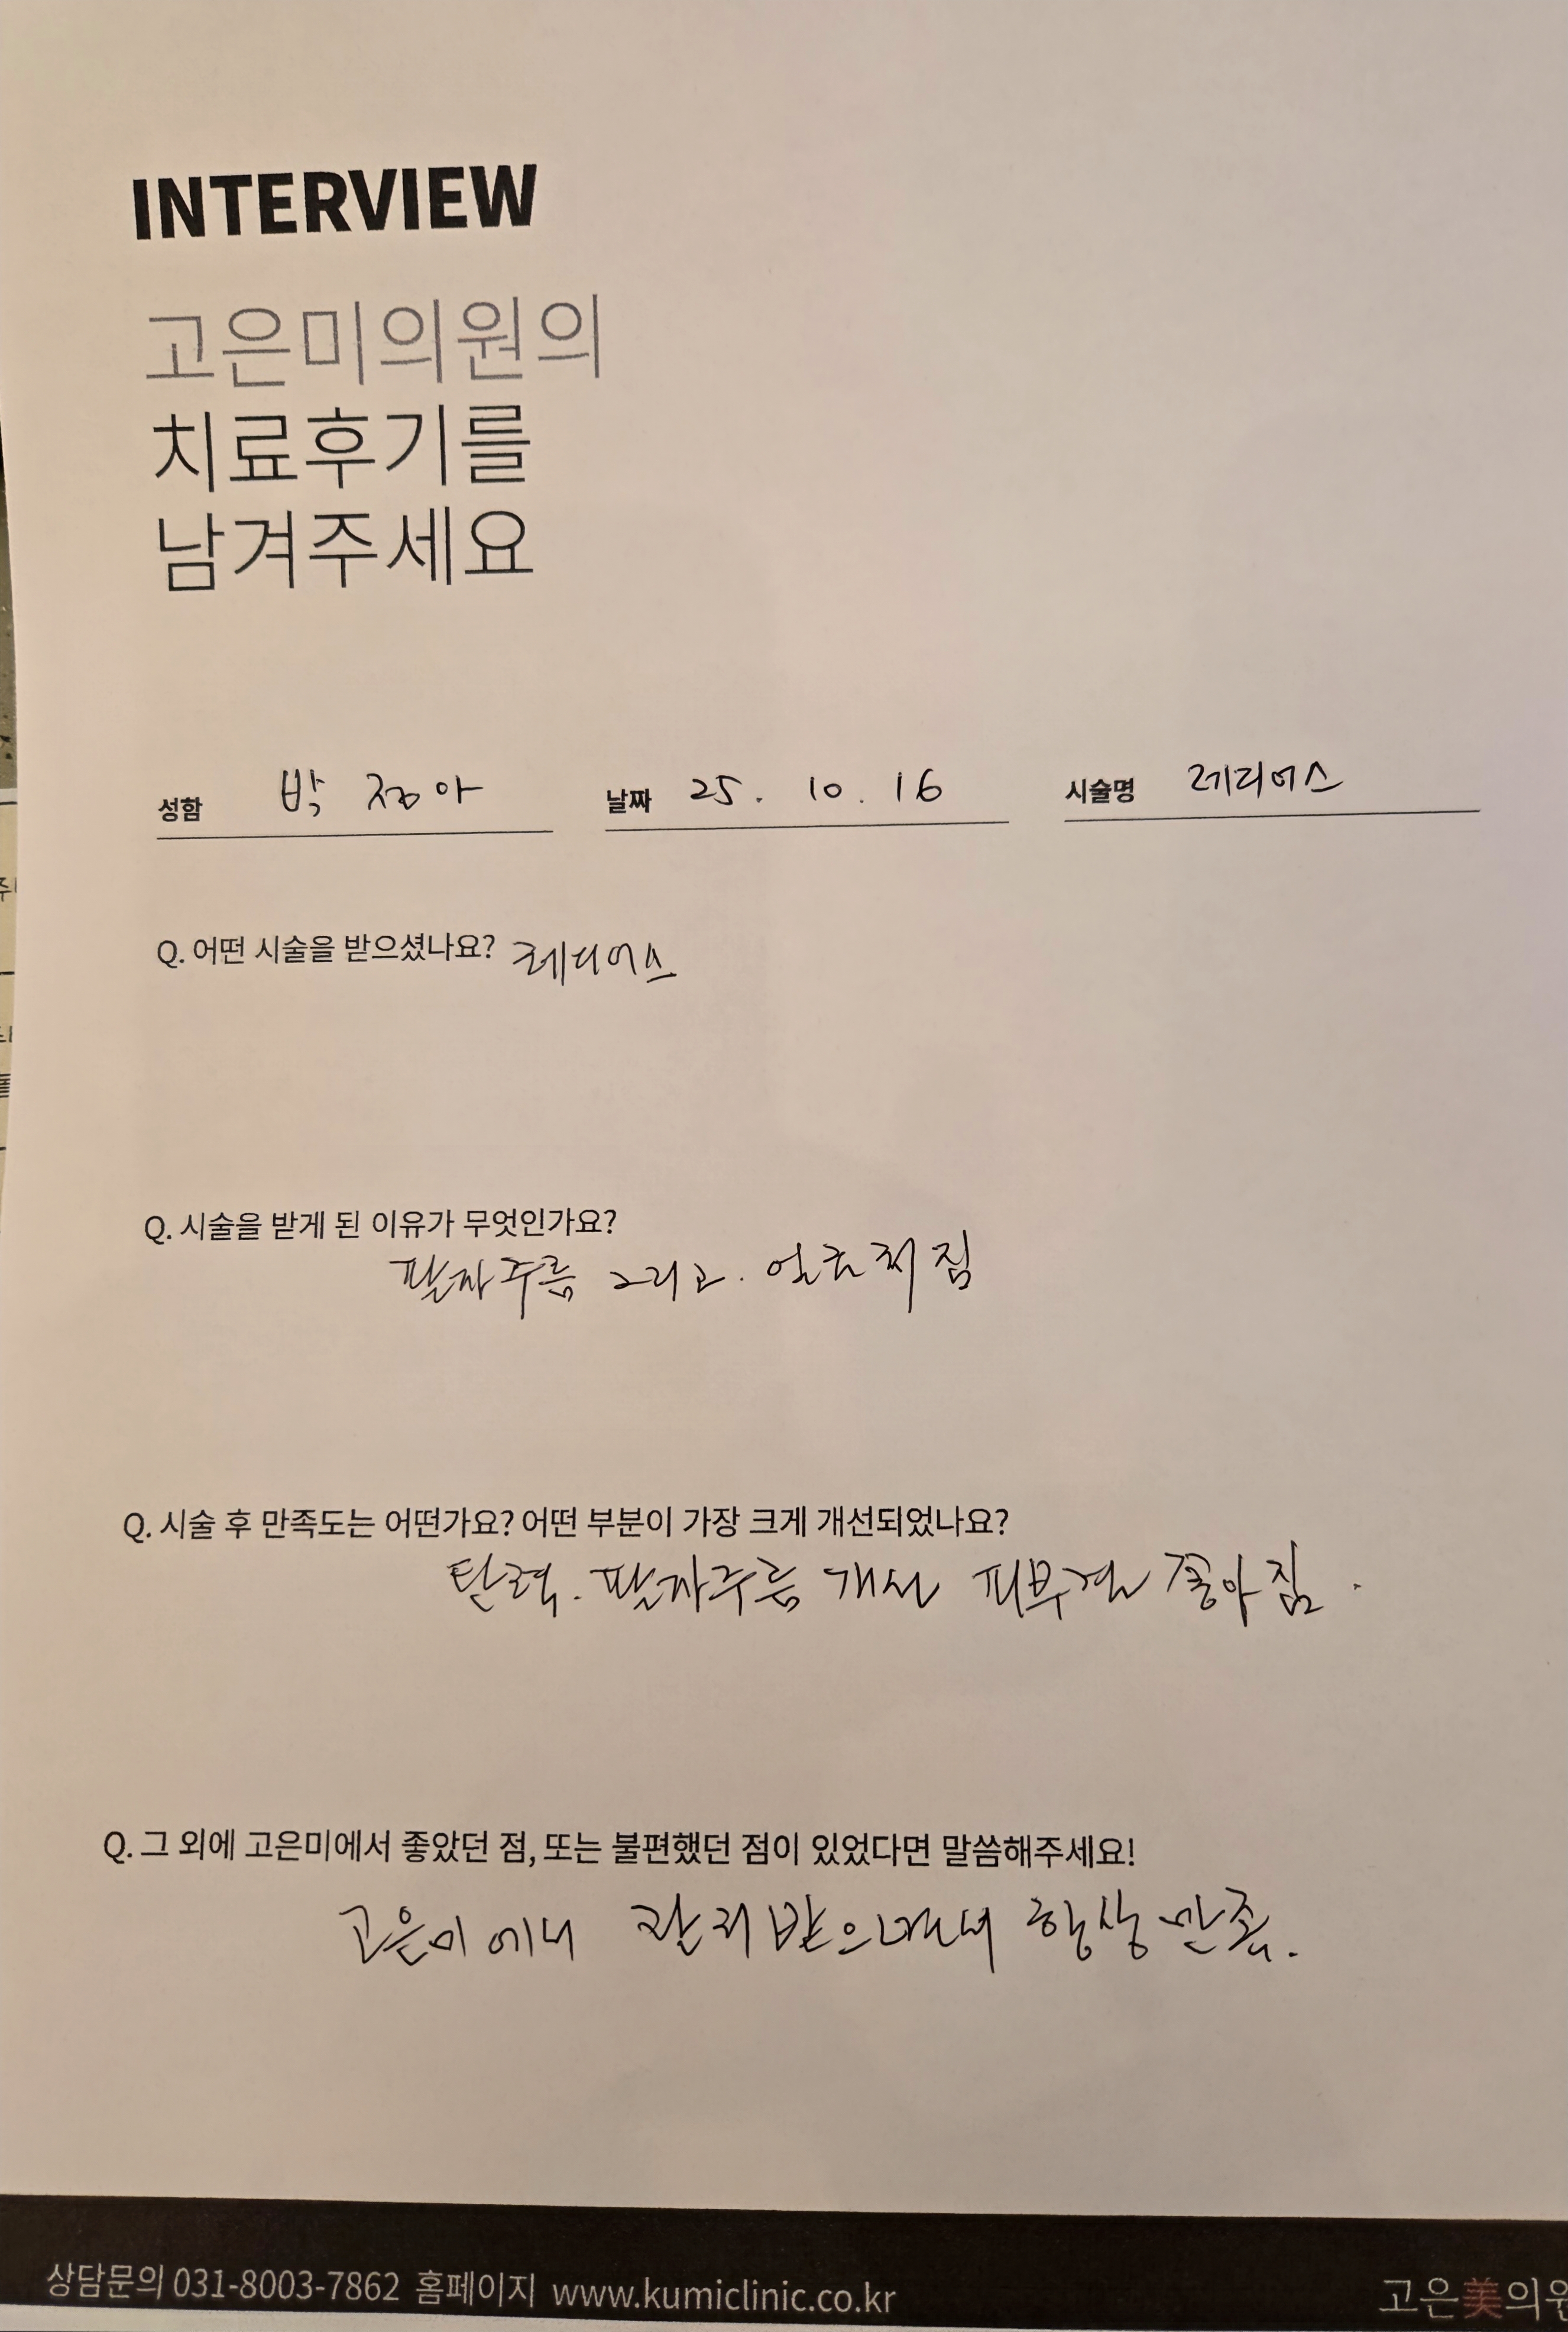 INTERVIEW
고은미의원의
치료후기를
남겨주세요
성함 박정아 날짜 25. 10. 16 시술명 레디어스
Q. 어떤 시술을 받으셨나요? 레디어스
Q. 시술을 받게 된 이유가 무엇인가요?
팔자주름 그리고. 얼굴처짐
Q. 시술 후 만족도는 어떤가요? 어떤 부분이 가장 크게 개선되었나요?
탄력. 팔자주름 개선 피부결 좋아짐.
Q. 그 외에 고은미에서 좋았던 점, 또는 불편했던 점이 있었다면 말씀해주세요!
고은미 관리 항상 만족.
상담문의 031-8003-7862 홈페이지 www.kumiclinic.co.kr
고은美의원